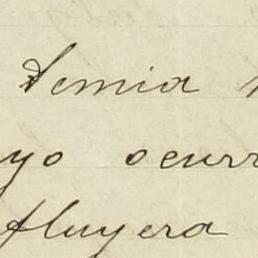 temia
yo ocurr
fluyera